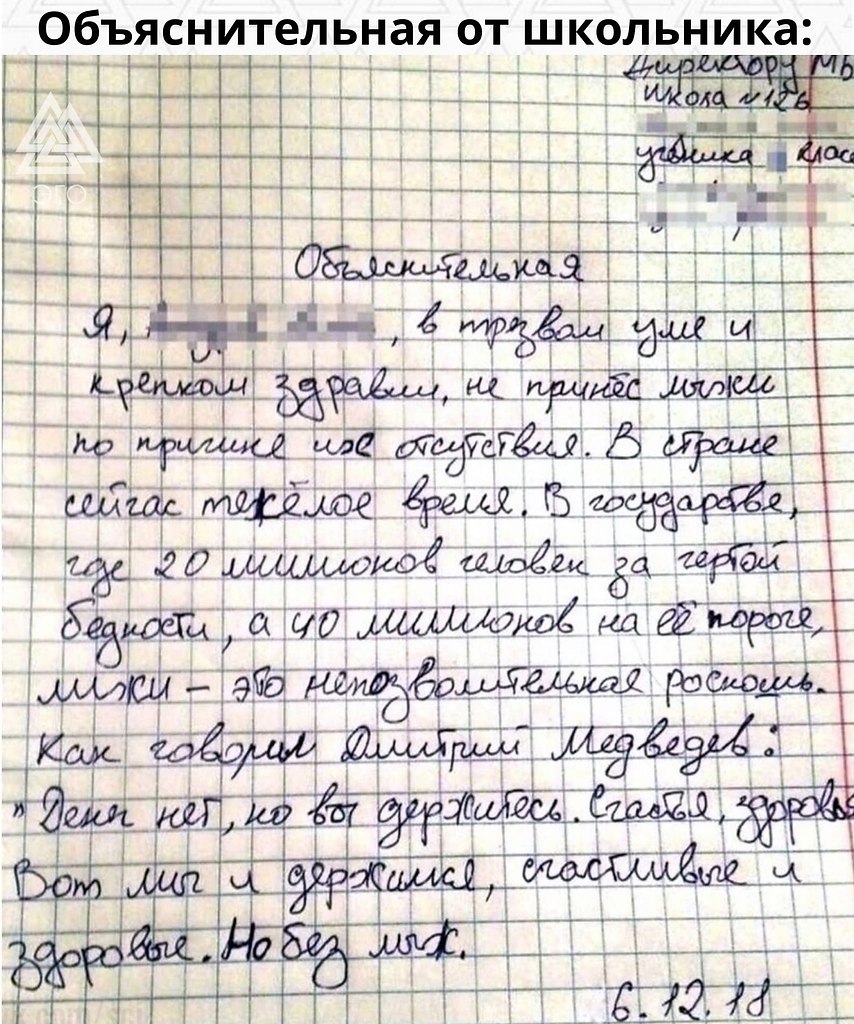 Объяснительная от школьника:
Директору МБ
школа №126
ученика класс
ЭТО
Объяснительная
Я, , в трезвом уме и
крепком здравии, не принёс лыжи
по причине их отсутствия. В стране
сейчас тяжёлое время. В государстве,
где 20 миллионов человек за чертой
бедности, а 40 миллионов на её пороге,
лыжи – это непозволительная роскошь.
Как говорил Дмитрий Медведев:
"Денег нет, но вы держитесь. Счастья, здоровья
Вот мы и держимся, счастливые и
здоровые. Но без лыж.
6.12.18